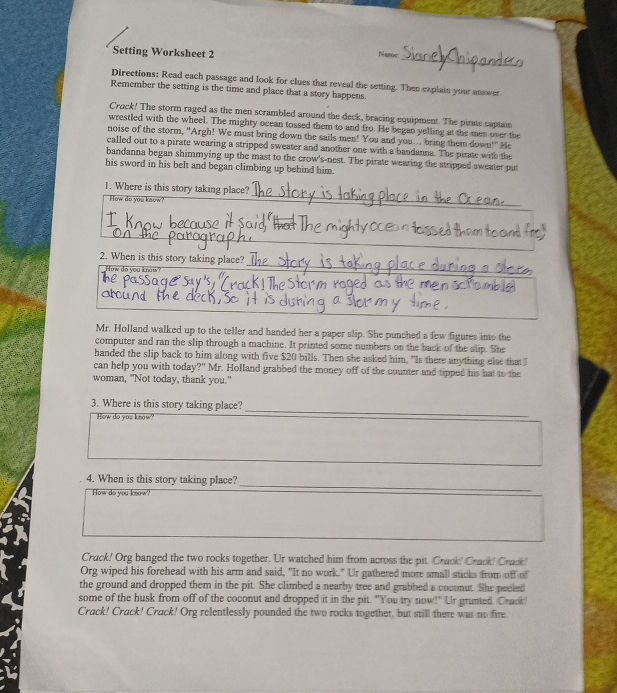 Setting Worksheet 2
Name:
Directions: Read each passage and look for clues that reveal the setting. Then explain your answer.
Remember the setting is the time and place that a story happens.
Crack! The storm raged as the men scrambled around the deck, bracing equipment. The pirate captain
wrestled with the wheel. The mighty ocean tossed them to and fro. He began yelling at the men over the
noise of the storm, "Argh! We must bring down the sails men! You and you… bring them down!" He
called out to a pirate wearing a stripped sweater and another one with a bandanna. The pirate with the
bandanna began shimmying up the mast to the crow's-nest. The pirate wearing the stripped sweater put
his sword in his belt and began climbing up behind him.
1. Where is this story taking place? The story is taking place in the Ocean.
How do you know?
I know because it said, "that The mighty ocean tossed them to and fro"
on the paragraph.
2. When is this story taking place? The story is taking place during a
How do you know?
The passage say's, "Crack! The storm raged as the men scrambled
around the deck, so it is during a stormy time.
Mr. Holland walked up to the teller and handed her a paper slip. She punched a few figures into the
computer and ran the slip through a machine. It printed some numbers on the back of the slip. She
handed the slip back to him along with five $20 bills. Then she asked him, "Is there anything else that I
can help you with today?" Mr. Holland grabbed the money off of the counter and tipped his hat to the
woman, "Not today, thank you."
3. Where is this story taking place?
How do you know?
4. When is this story taking place?
How do you know?
Crack! Org banged the two rocks together. Ur watched him from across the pit. Crack! Crack! Crack!
Org wiped his forehead with his arm and said, "It no work." Ur gathered more small sticks from off of
the ground and dropped them in the pit. She climbed a nearby tree and grabbed a coconut. She peeled
some of the husk from off of the coconut and dropped it in the pit. "You try now!" Ur grunted. Crack!
Crack! Crack! Crack! Org relentlessly pounded the two rocks together, but still there was no fire.